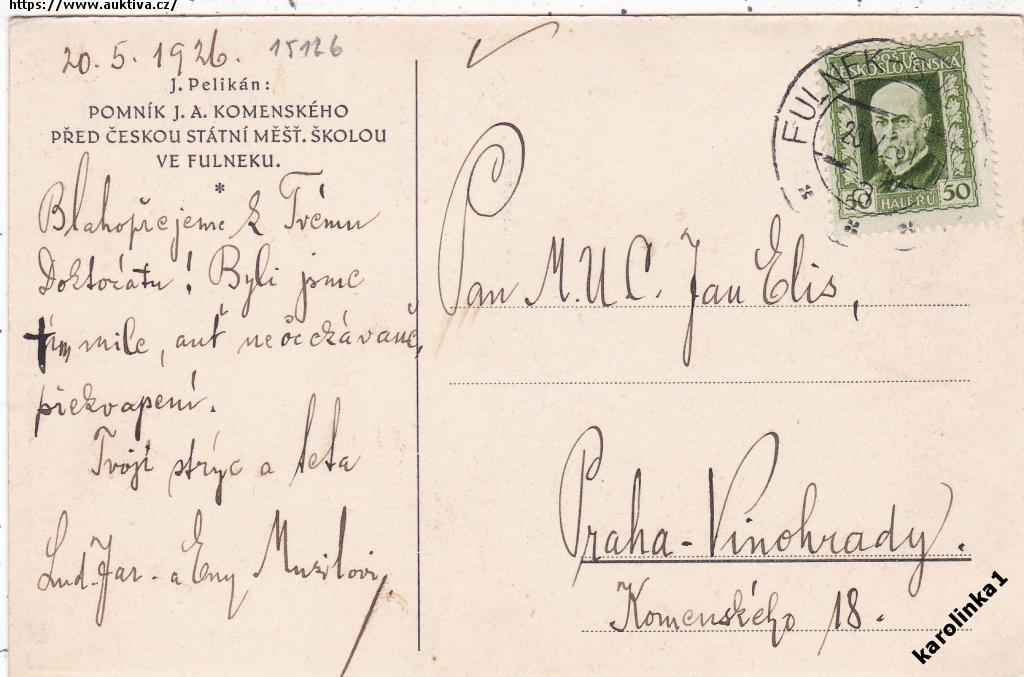 https://www.auktiva.cz/
20. 5. 1926. 15126
J. Pelikán:
POMNÍK J. A. KOMENSKÉHO
PŘED ČESKOU STÁTNÍ MĚŠŤ. ŠKOLOU
VE FULNEKU.
*
Blahopřejeme k Tvému
Doktorátu! Byli jsme
tím mile, ant neočekávaně,
překvapeni.
Tvoji strýc a teta
Lud. Jar. a Eny Musilovi,
FULNEK
20 V
POŠTA
ČESKOSLOVENSKÁ
50 HALÉŘŮ 50
Pan M.U.C. Jan Elis,
Praha-Vinohrady.
Komenského 18.
karolinka1